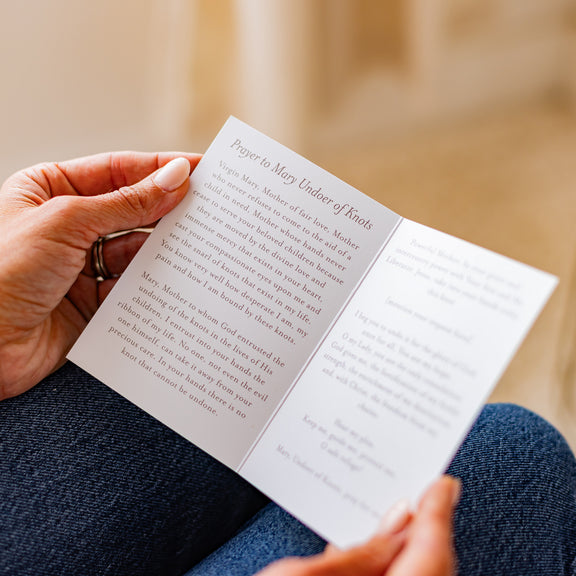 Prayer to Mary Undoer of Knots
Virgin Mary, Mother of fair love, Mother
who never refuses to come to the aid of a
child in need, Mother whose hands never
cease to serve your beloved children because
they are moved by the divine love and
immense mercy that exists in your heart,
cast your compassionate eyes upon me and
see the snarl of knots that exist in my life.
You know very well how desperate I am, my
pain and how I am bound by these knots.
Mary, Mother to whom God entrusted the
undoing of the knots in the lives of His
children, I entrust into your hands the
ribbon of my life. No one, not even the evil
one himself, can take it away from your
precious care. In your hands there is no
knot that cannot be undone.
Powerful Mother, by your grace and
intercessory power with Your Son and My
Liberator, Jesus, take into your hands today
this knot.
[mention your request here]
I beg you to undo it for the glory of God,
once for all. You are my hope.
O my Lady, you are the only consolation
God gives me, the fortification of my feeble
strength, the enrichment of my destitution,
and, with Christ, the freedom from my
chains.
Hear my plea.
Keep me, guide me, protect me,
O safe refuge!
Mary, Undoer of Knots, pray for